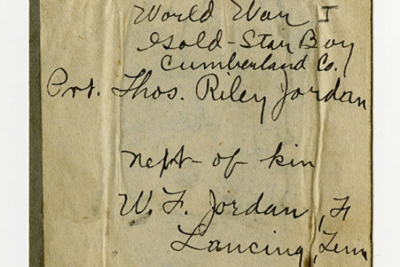 World War I
Gold-Star Boy
Cumberland Co.
Pvt. Thos. Riley Jordan
next of kin
W. F. Jordan, F
Lancing, Tenn